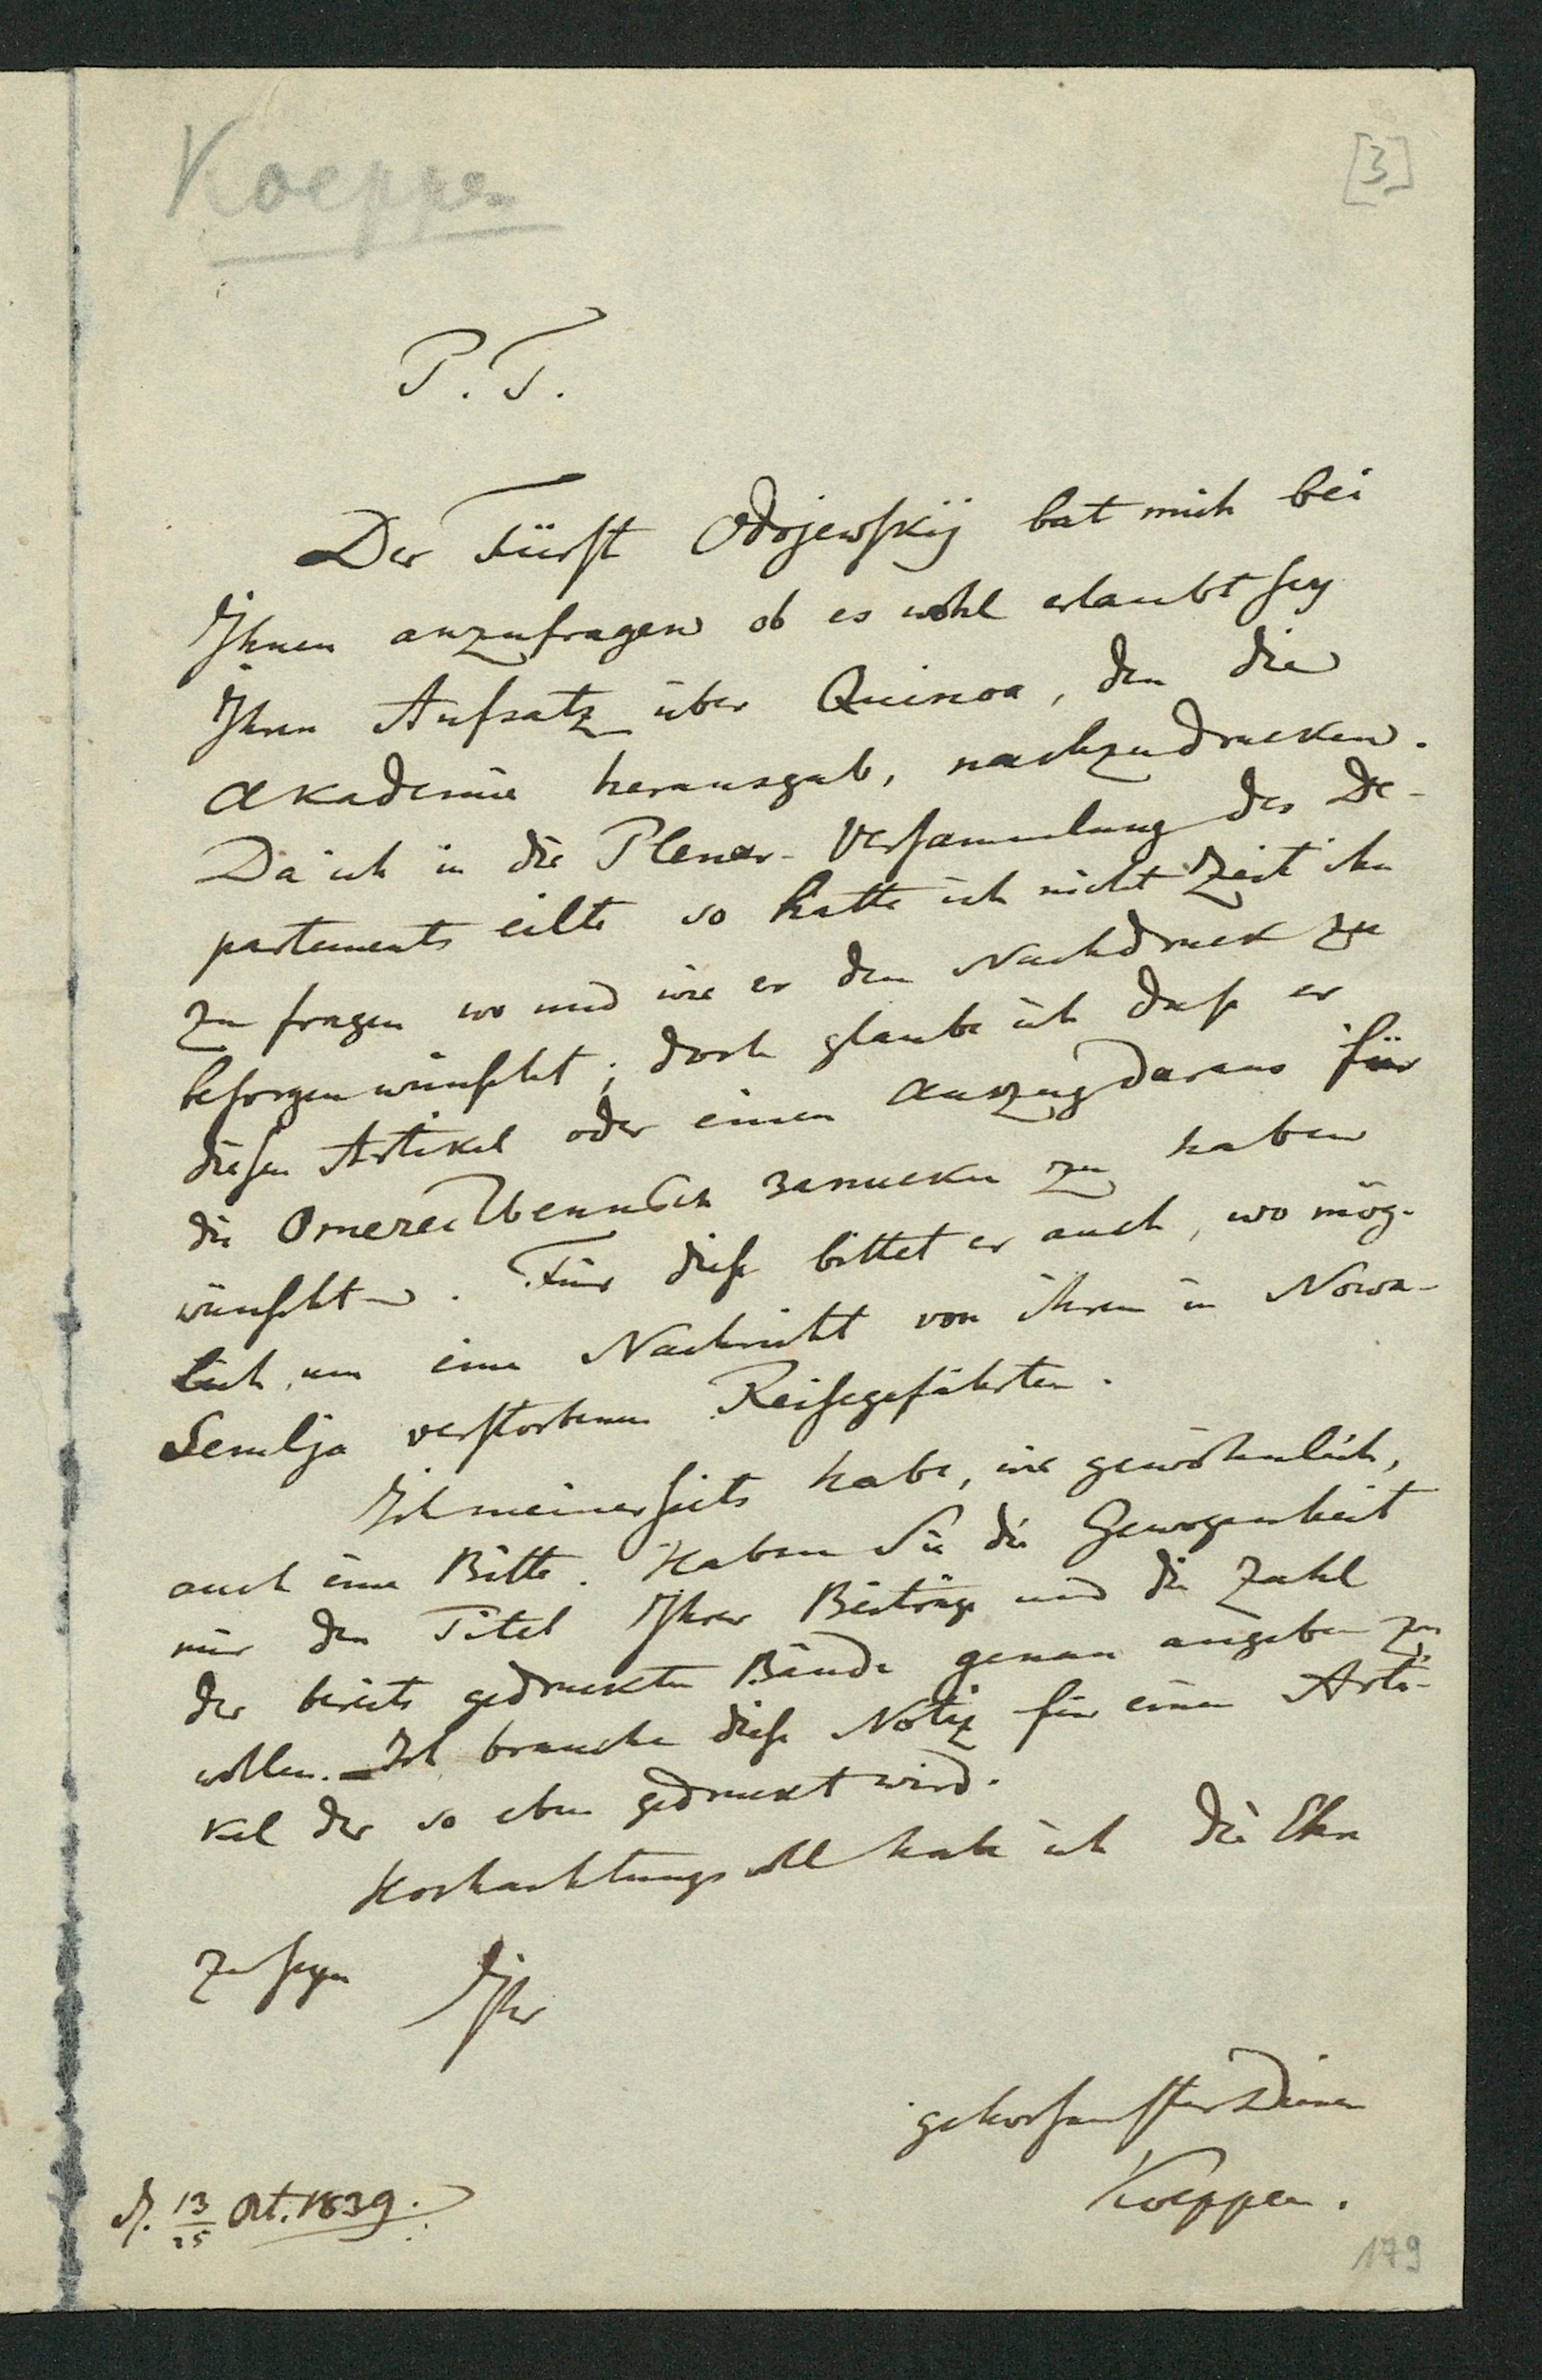 Koeppen
[3]
P. T.
Der Fürst Odojewskij bat mich bei
Ihnen anzufragen ob es wohl erlaubt sey
Ihren Aufsatz über Quinoa, den die
Akademie herausgab, nachzudrucken.
Da ich in die Plenar-Versammlung des De-
partements eilte so hatte ich nicht Zeit ihn
zu fragen wo und wie er den Nachdruck zu
besorgen wünscht; doch glaube ich daß er
diesen Artikel oder einen Auszug daraus für
die Отечественныя записки zu haben
wünscht. Für diese bittet er auch, wo mög-
lich, um eine Nachricht von ihrem in Nowa-
Semlja verstorbenen Reisegefährten.
Ich meinerseits habe, wie gewöhnlich,
auch eine Bitte. Haben Sie die Gewogenheit
mir den Titel Ihrer Beiträge und die Zahl
der bereits gedruckten Bände genau angeben zu
wollen. Ich brauche diese Notiz für einen Arti-
kel der so eben gedruckt wird.
Hochachtungsvoll habe ich die Ehre
zu seyn Ihr
gehorsamster Diener
Koeppen.
d. 13/25 Oct. 1839.
179